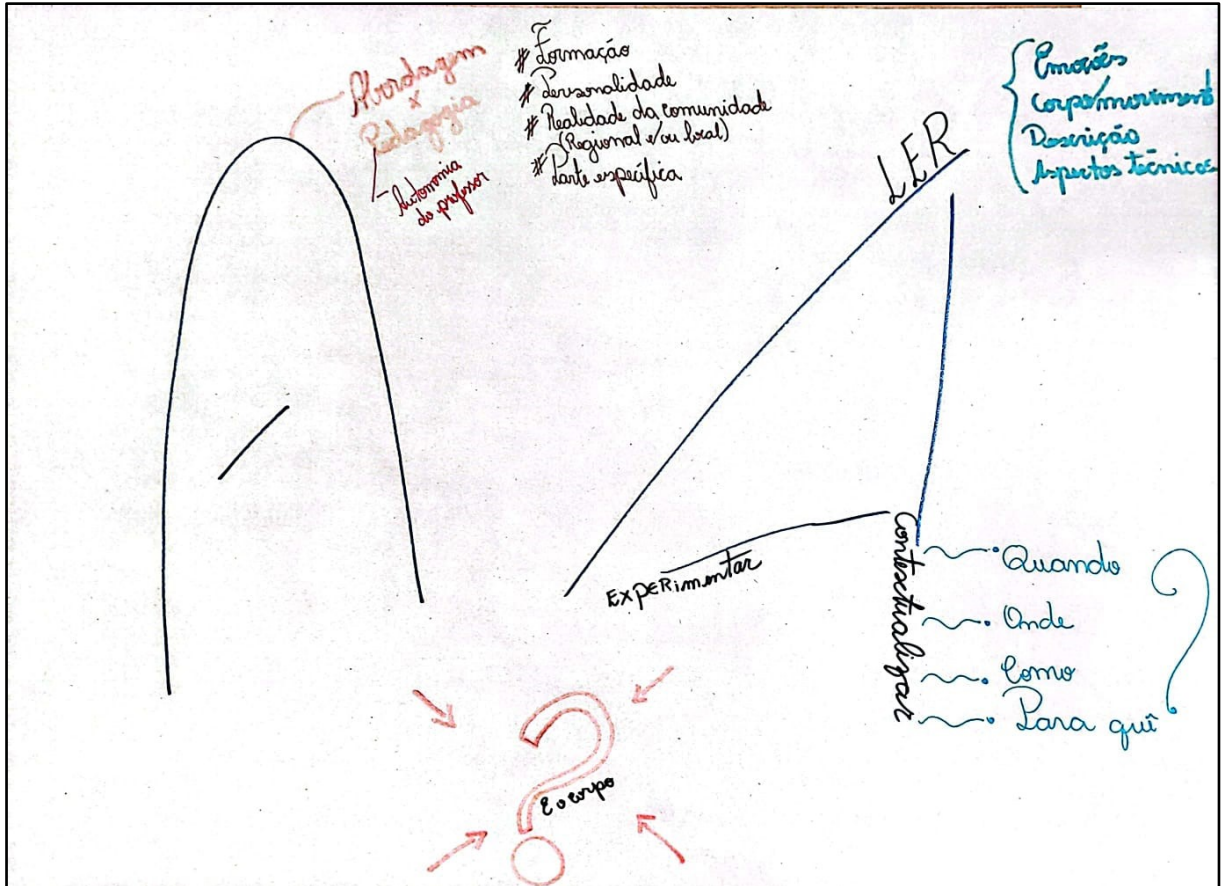 Abordagem
x
Pedagogia
Autonomia
do professor
# Formação
# Personalidade
# Realidade da comunidade
(Regional e/ou local)
# Parte específica
LER
Emoções
Corpo/movimento
Descrição
Aspectos técnicos
Experimentar
Contextualizar
Quando
Onde
Como
Para quê
?
?
E o corpo